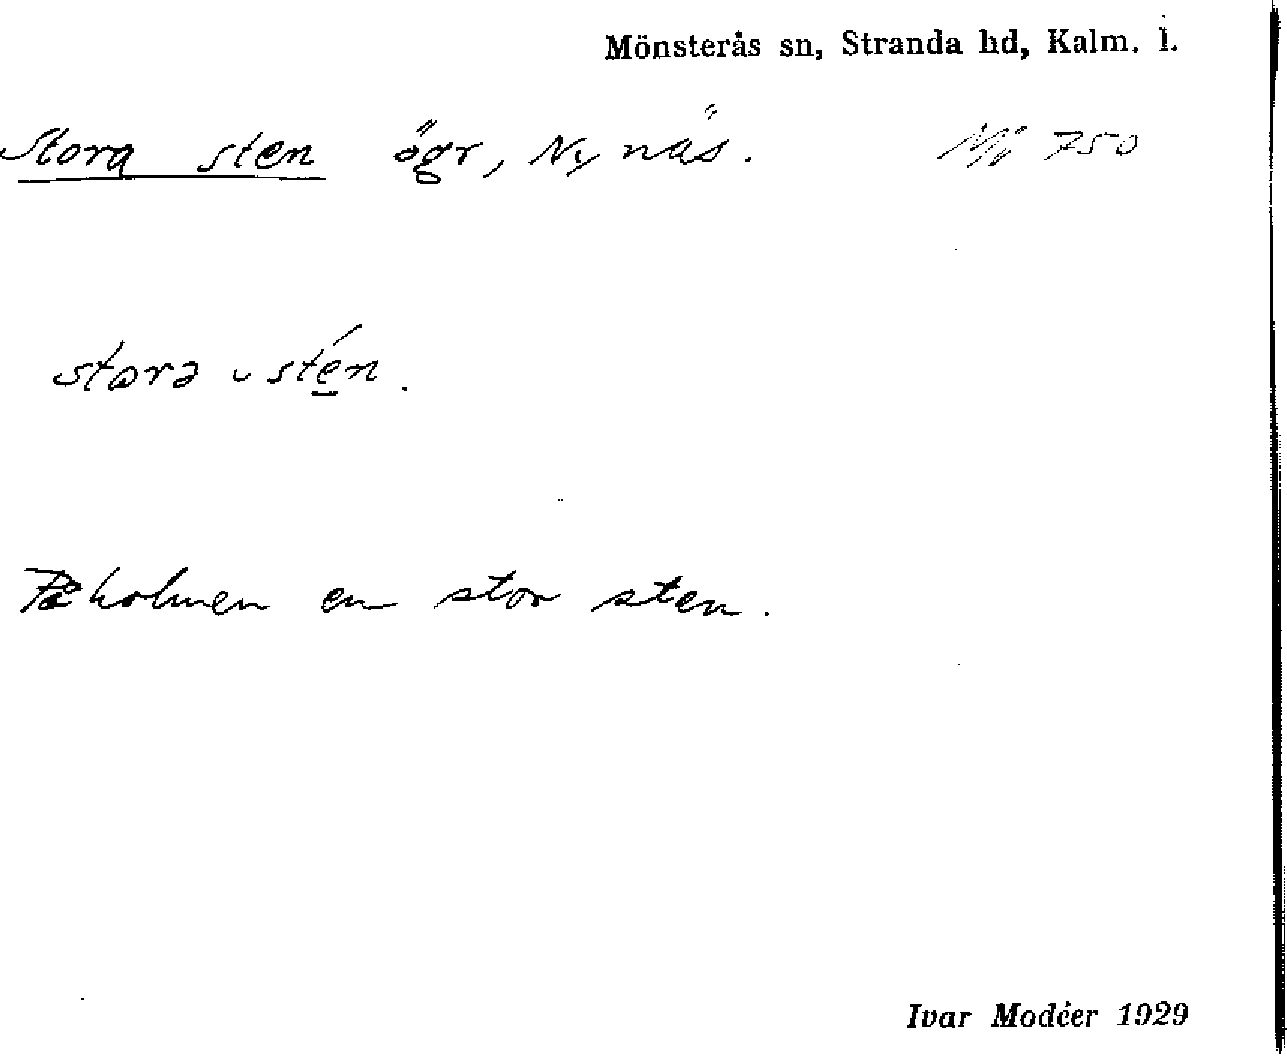 Mönsterås sn, Stranda hd, Kalm. l.
Stora sten ögr, Nynäs. Mö 750
stora ᴗ stén.
På holmen en stor sten.
Ivar Modéer 1929